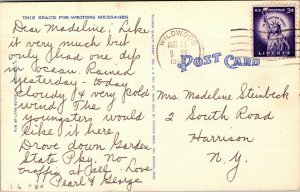 THIS SPACE FOR WRITING MESSAGES
Dear Madeline; Like
it very much but
only had one dip
in ocean. Rained
yesterday & today
cloudy & very cold
windy. The
youngsters would
like it here.
Drove down Garden
State Pky. No
traffic at all. Love
Pearl & George
WILDWOOD
AUG 11
9
U.S. POSTAGE 3¢
LIBERTY
POST CARD
Mrs. Madeline Steinbeck
2 South Road
Harrison
N.Y.